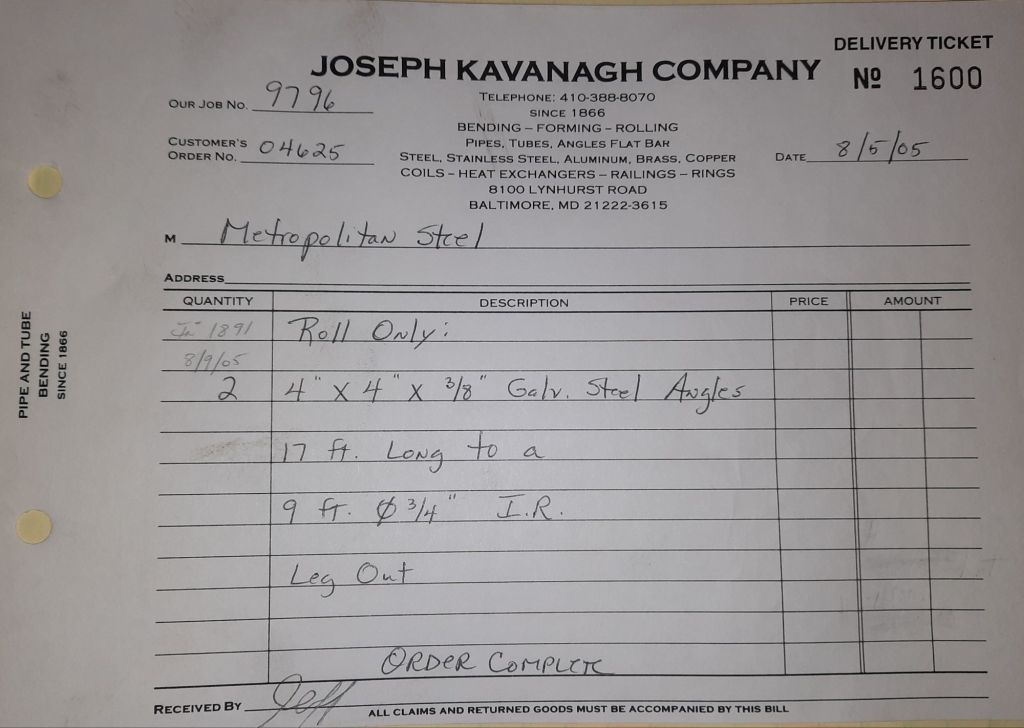 DELIVERY TICKET
JOSEPH KAVANAGH COMPANY
Nº 1600
OUR JOB NO. 9796
TELEPHONE: 410-388-8070
SINCE 1866
BENDING – FORMING – ROLLING
CUSTOMER'S ORDER NO. 04625
PIPES, TUBES, ANGLES FLAT BAR
STEEL, STAINLESS STEEL, ALUMINUM, BRASS, COPPER
DATE 8/5/05
COILS – HEAT EXCHANGERS – RAILINGS – RINGS
8100 LYNHURST ROAD
BALTIMORE, MD 21222-3615
M Metropolitan Steel
ADDRESS
QUANTITY DESCRIPTION PRICE AMOUNT
1891 Roll Only:
8/9/05
2 4" X 4" X 3/8" Galv. Steel Angles
17 ft. Long to a
9 ft. Ø 3/4" I.R.
Leg Out
ORDER COMPLETE
RECEIVED BY Jeff
ALL CLAIMS AND RETURNED GOODS MUST BE ACCOMPANIED BY THIS BILL
PIPE AND TUBE
BENDING
SINCE 1866